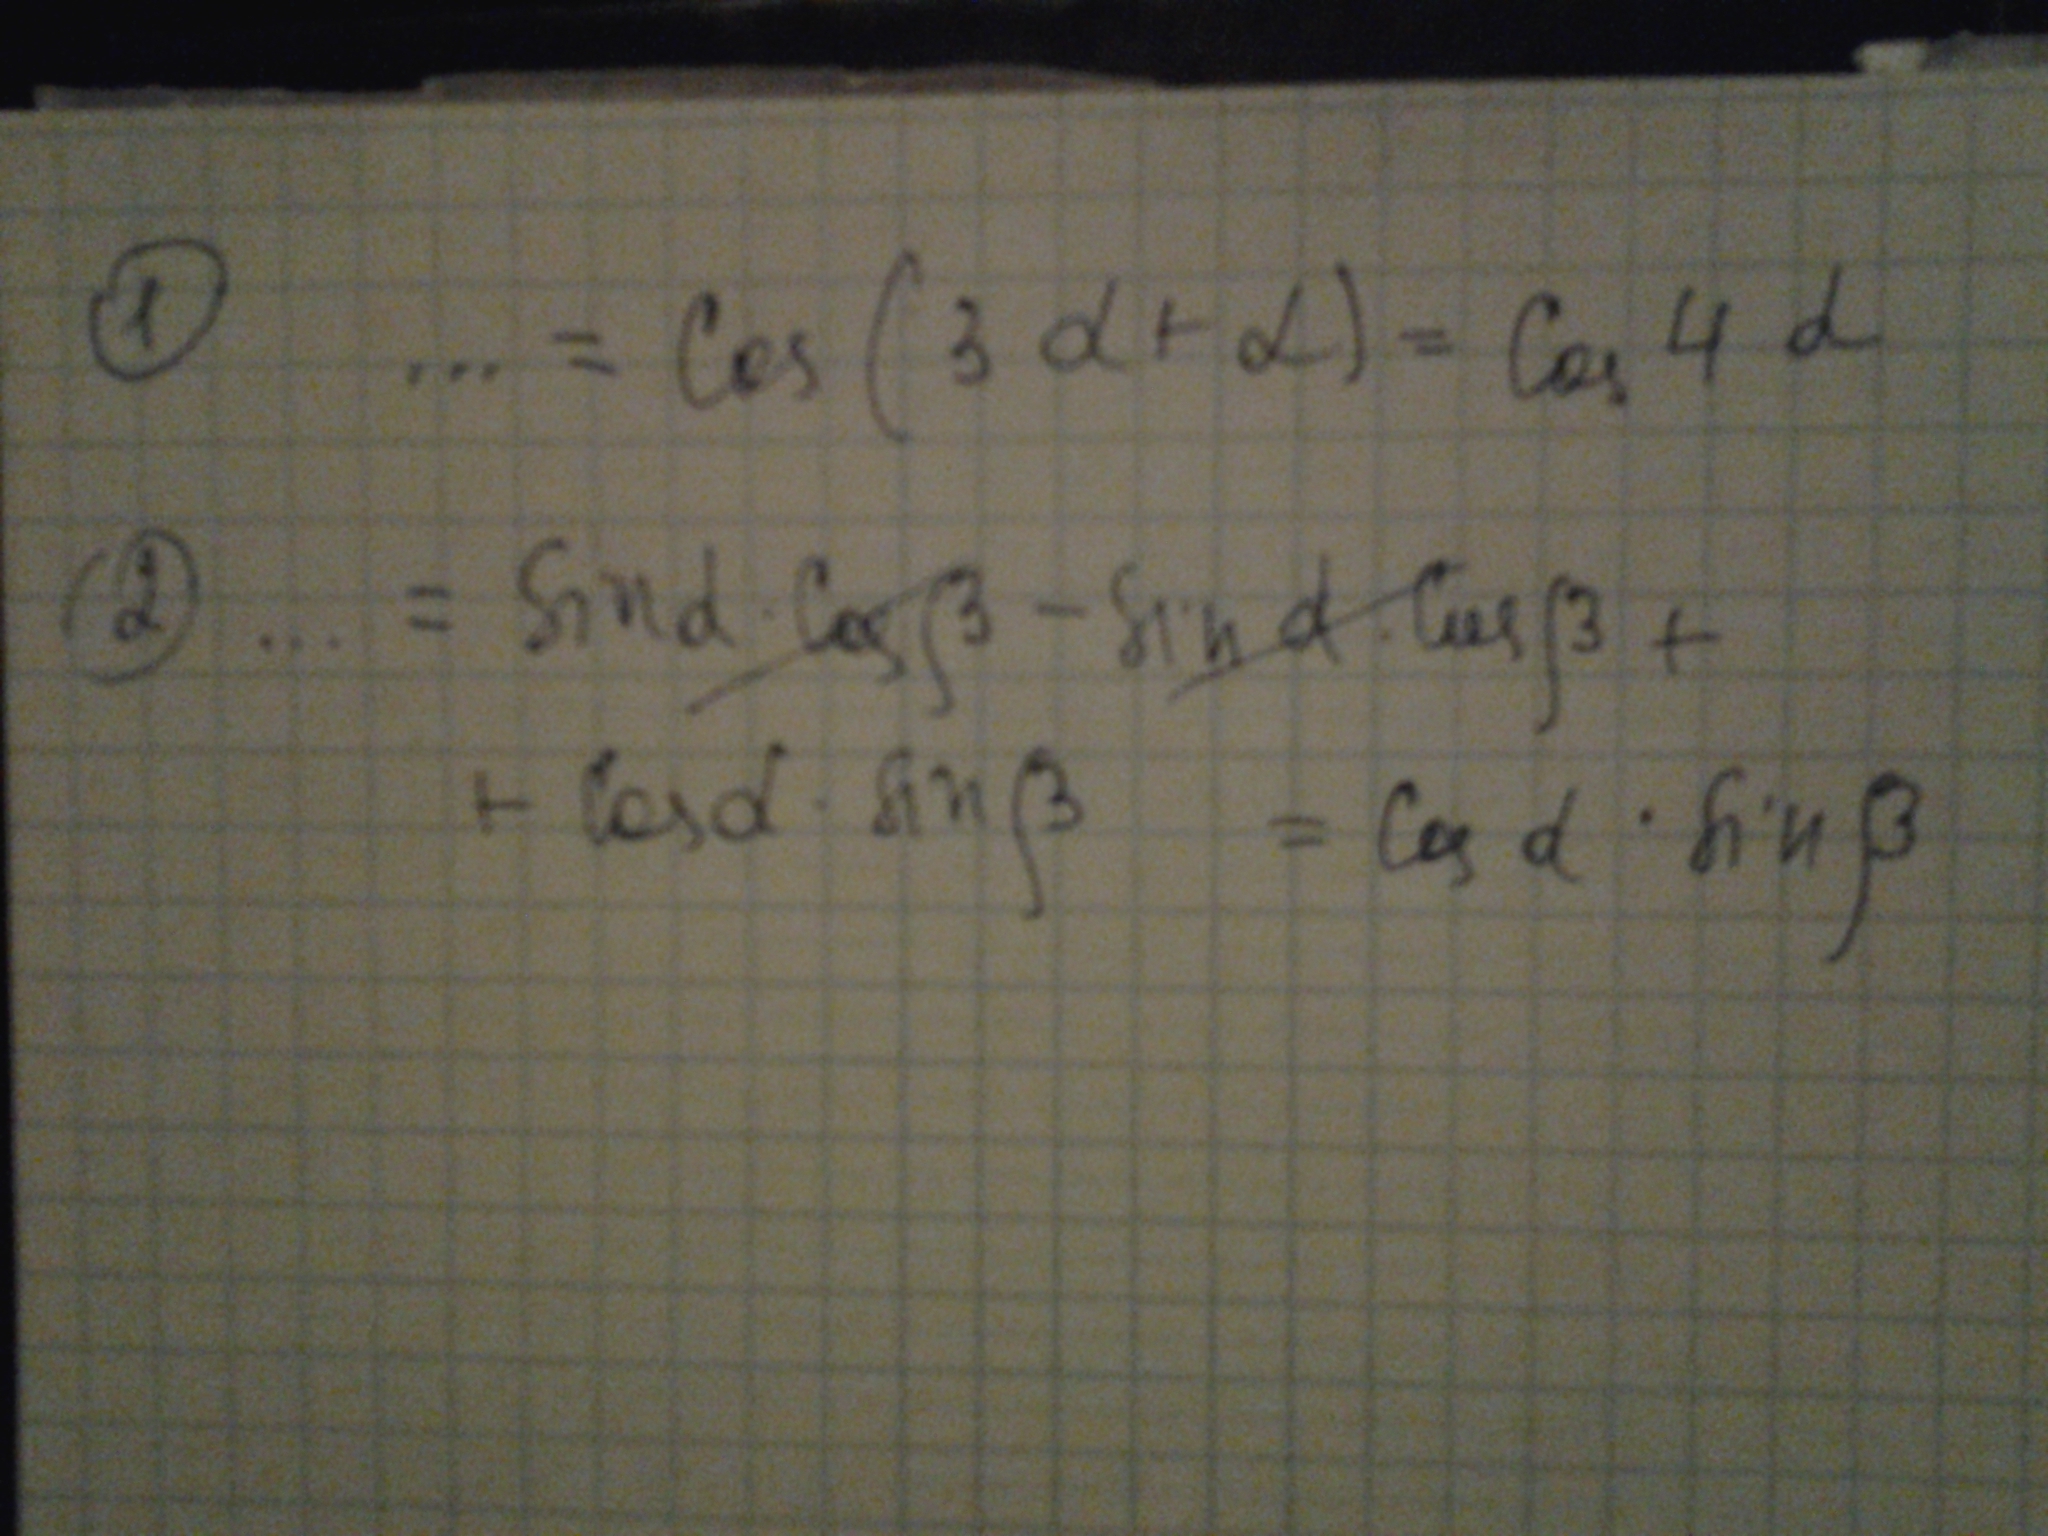 ① ... = Cos (3 α + α) = Cos 4 α
② ... = Sin α · Cos β - Sin α · Cos β +
+ Cos α · Sin β = Cos α · Sin β